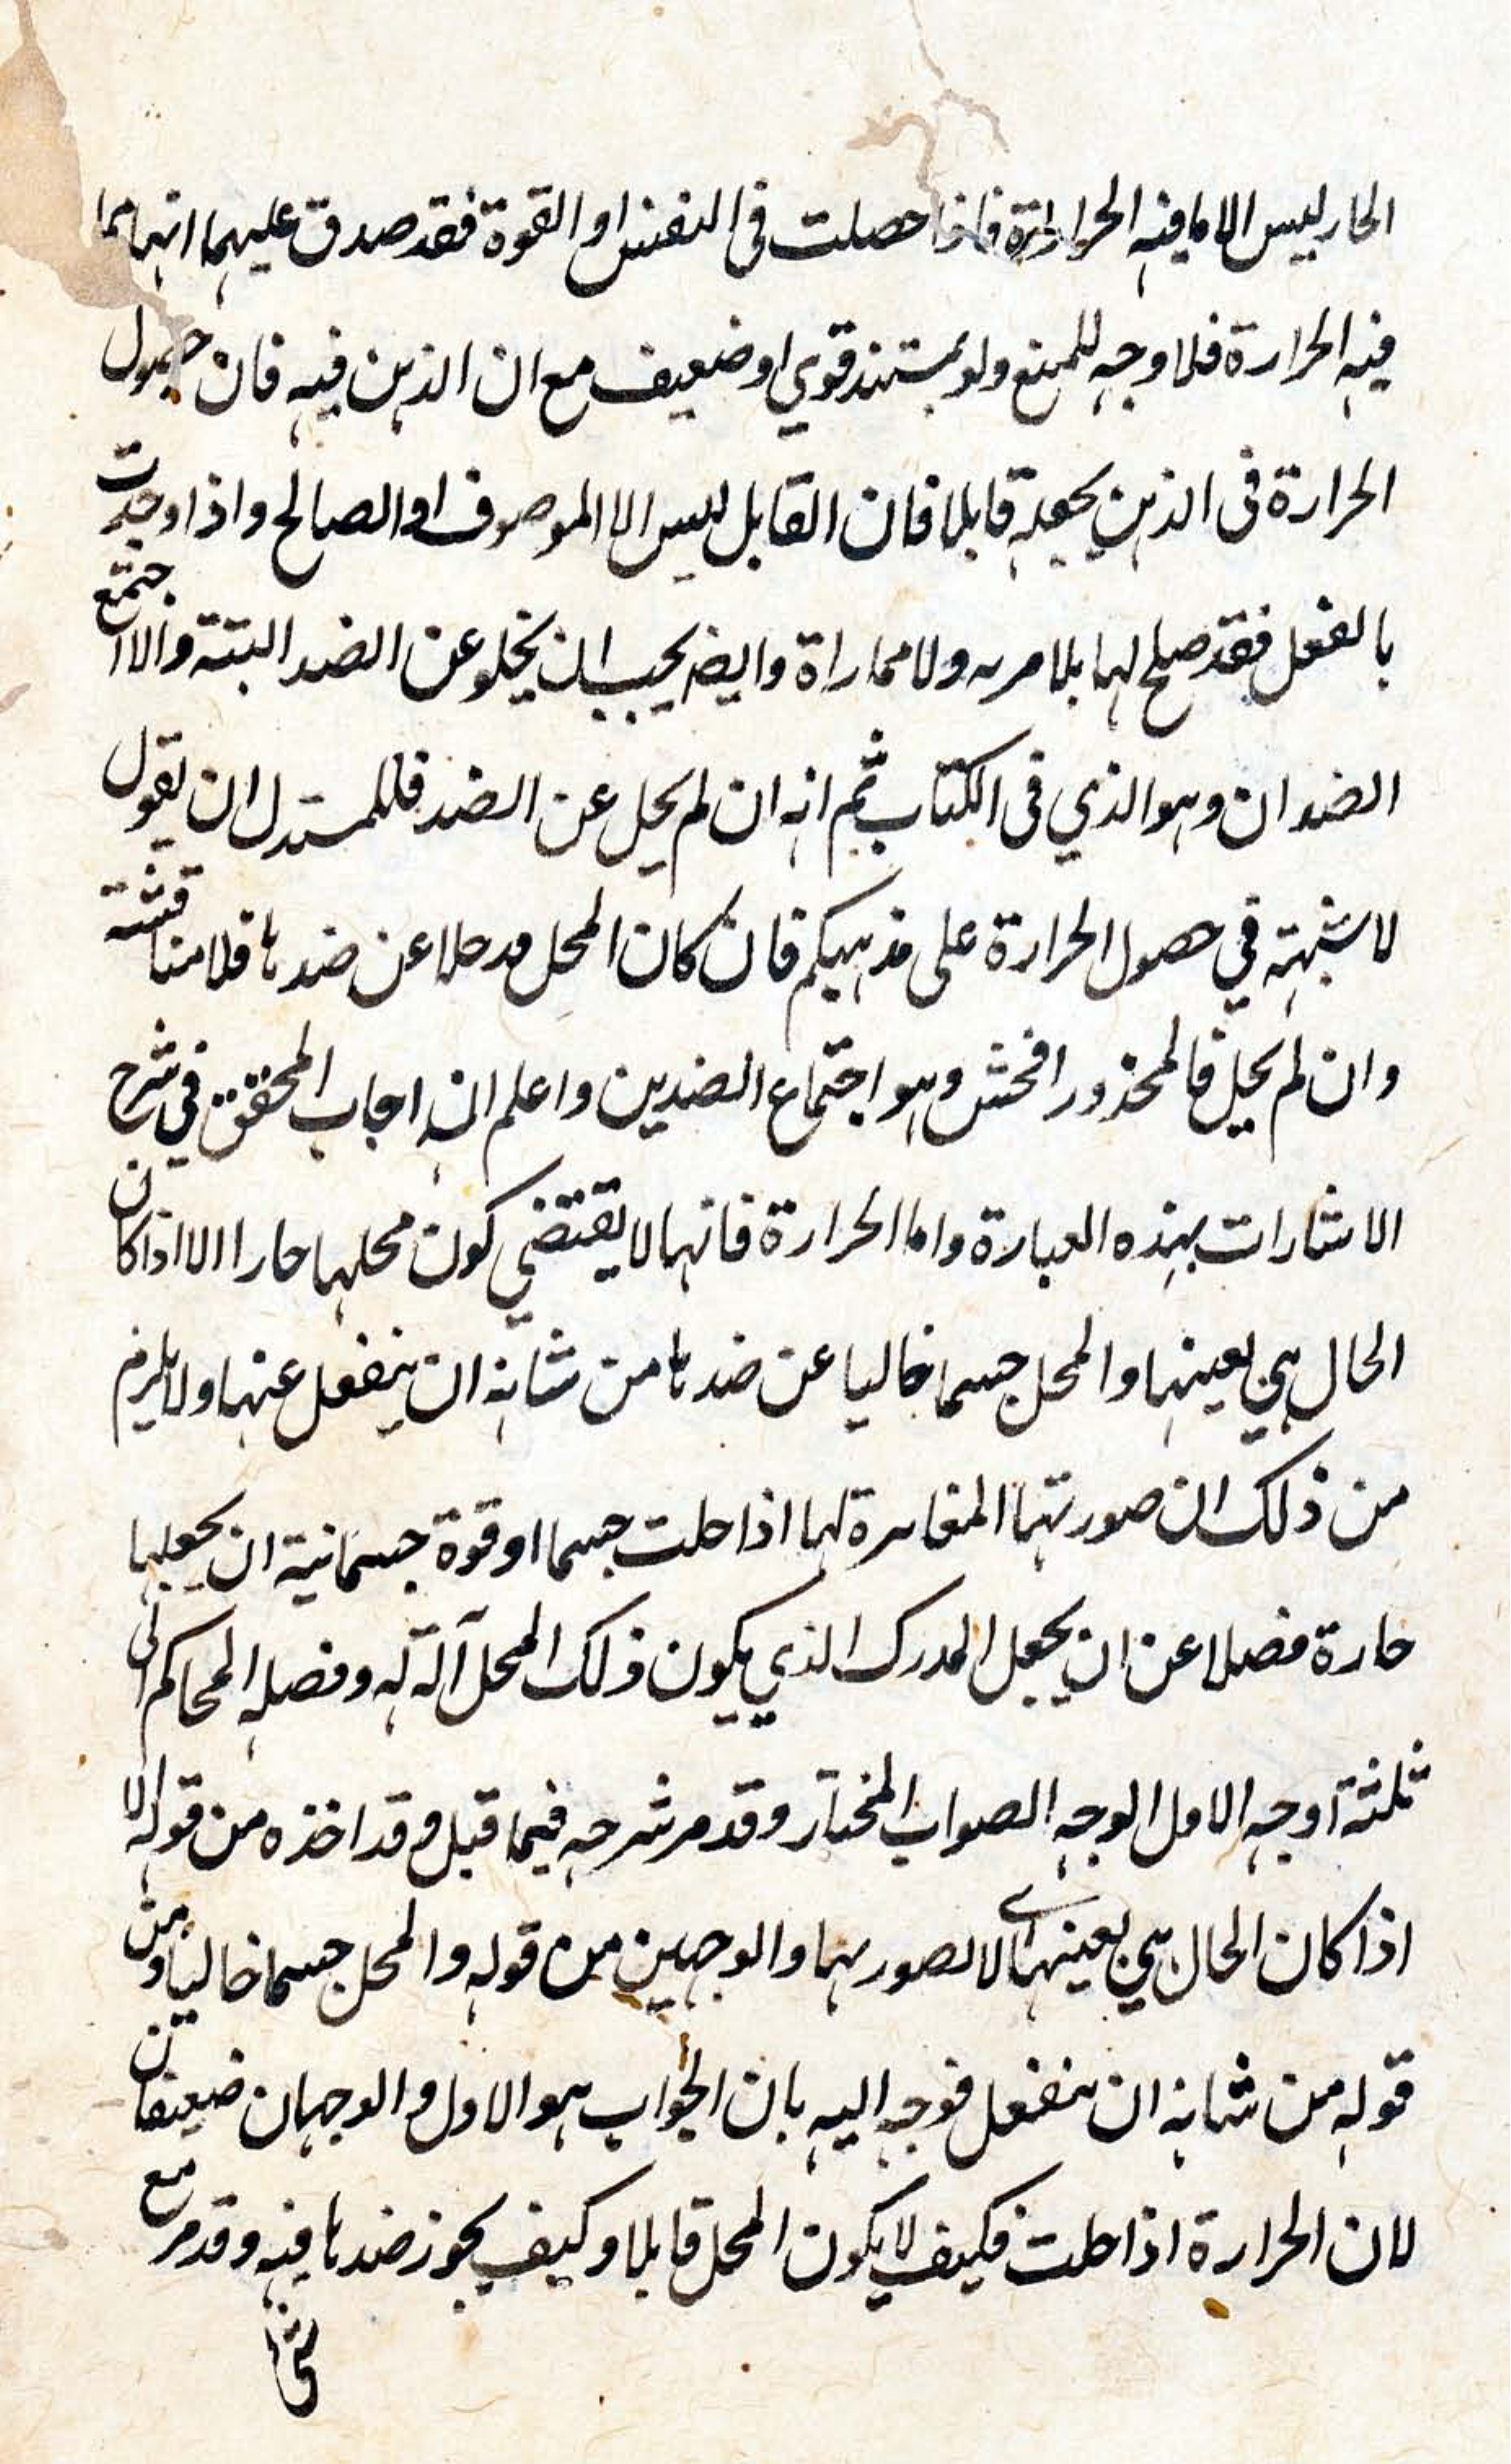 الحار ليس الا ما فيه الحرارة فاذا حصلت في النفس او القوة فقد صدق عليهما انهما مما
فيه الحرارة فلا وجه للمنع ولو بمستند قوي او ضعيف مع ان الذهن فيه فان حصول
الحرارة في الذهن يجعله قابلا فان القابل ليس الا الموصوف او الصالح واذا وجدت
بالفعل فقد صلح لها بلا مريه ولا مماراة وايضا يجب ان يخلو عن الضد البتة والا اجتمع
الضدان وهو الذي في الكتاب ثم انه ان لم يخل عن الضد فللمستدل ان يقول
لا شبهة في حصول الحرارة على مذهبكم فان كان المحل قد خلا عن ضدها فلا مناقشة
وان لم يخل فالمحذور افحش وهو اجتماع الضدين واعلم انه اجاب المحقق في شرح
الاشارات بهذه العبارة واما الحرارة فانها لا يقتضي كون محلها حارا الا اذا كان
الحال هي بعينها والمحل جسما خاليا عن ضدها من شانه ان ينفعل عنها ولا يلزم
من ذلك ان صورتها المغايرة لها اذا حلت جسما او قوة جسمانية ان يجعلها
حارة فضلا عن ان يجعل المدرك الذي يكون ذلك المحل آلة له وفصله المحاكم الى
ثلثة اوجه الاول الوجه الصواب المختار وقد مر شرحه فيما قبل وقد اخذه من قوله الا
اذا كان الحال هي بعينها اي لا لصورتها والوجهين من قوله والمحل جسما خاليا ومن
قوله من شانه ان ينفعل فوجه اليه بان الجواب هو الاول والوجهان ضعيفان
لان الحرارة اذا حلت فكيف لا يكون المحل قابلا وكيف يجوز ضدها فيه وقد مر مع